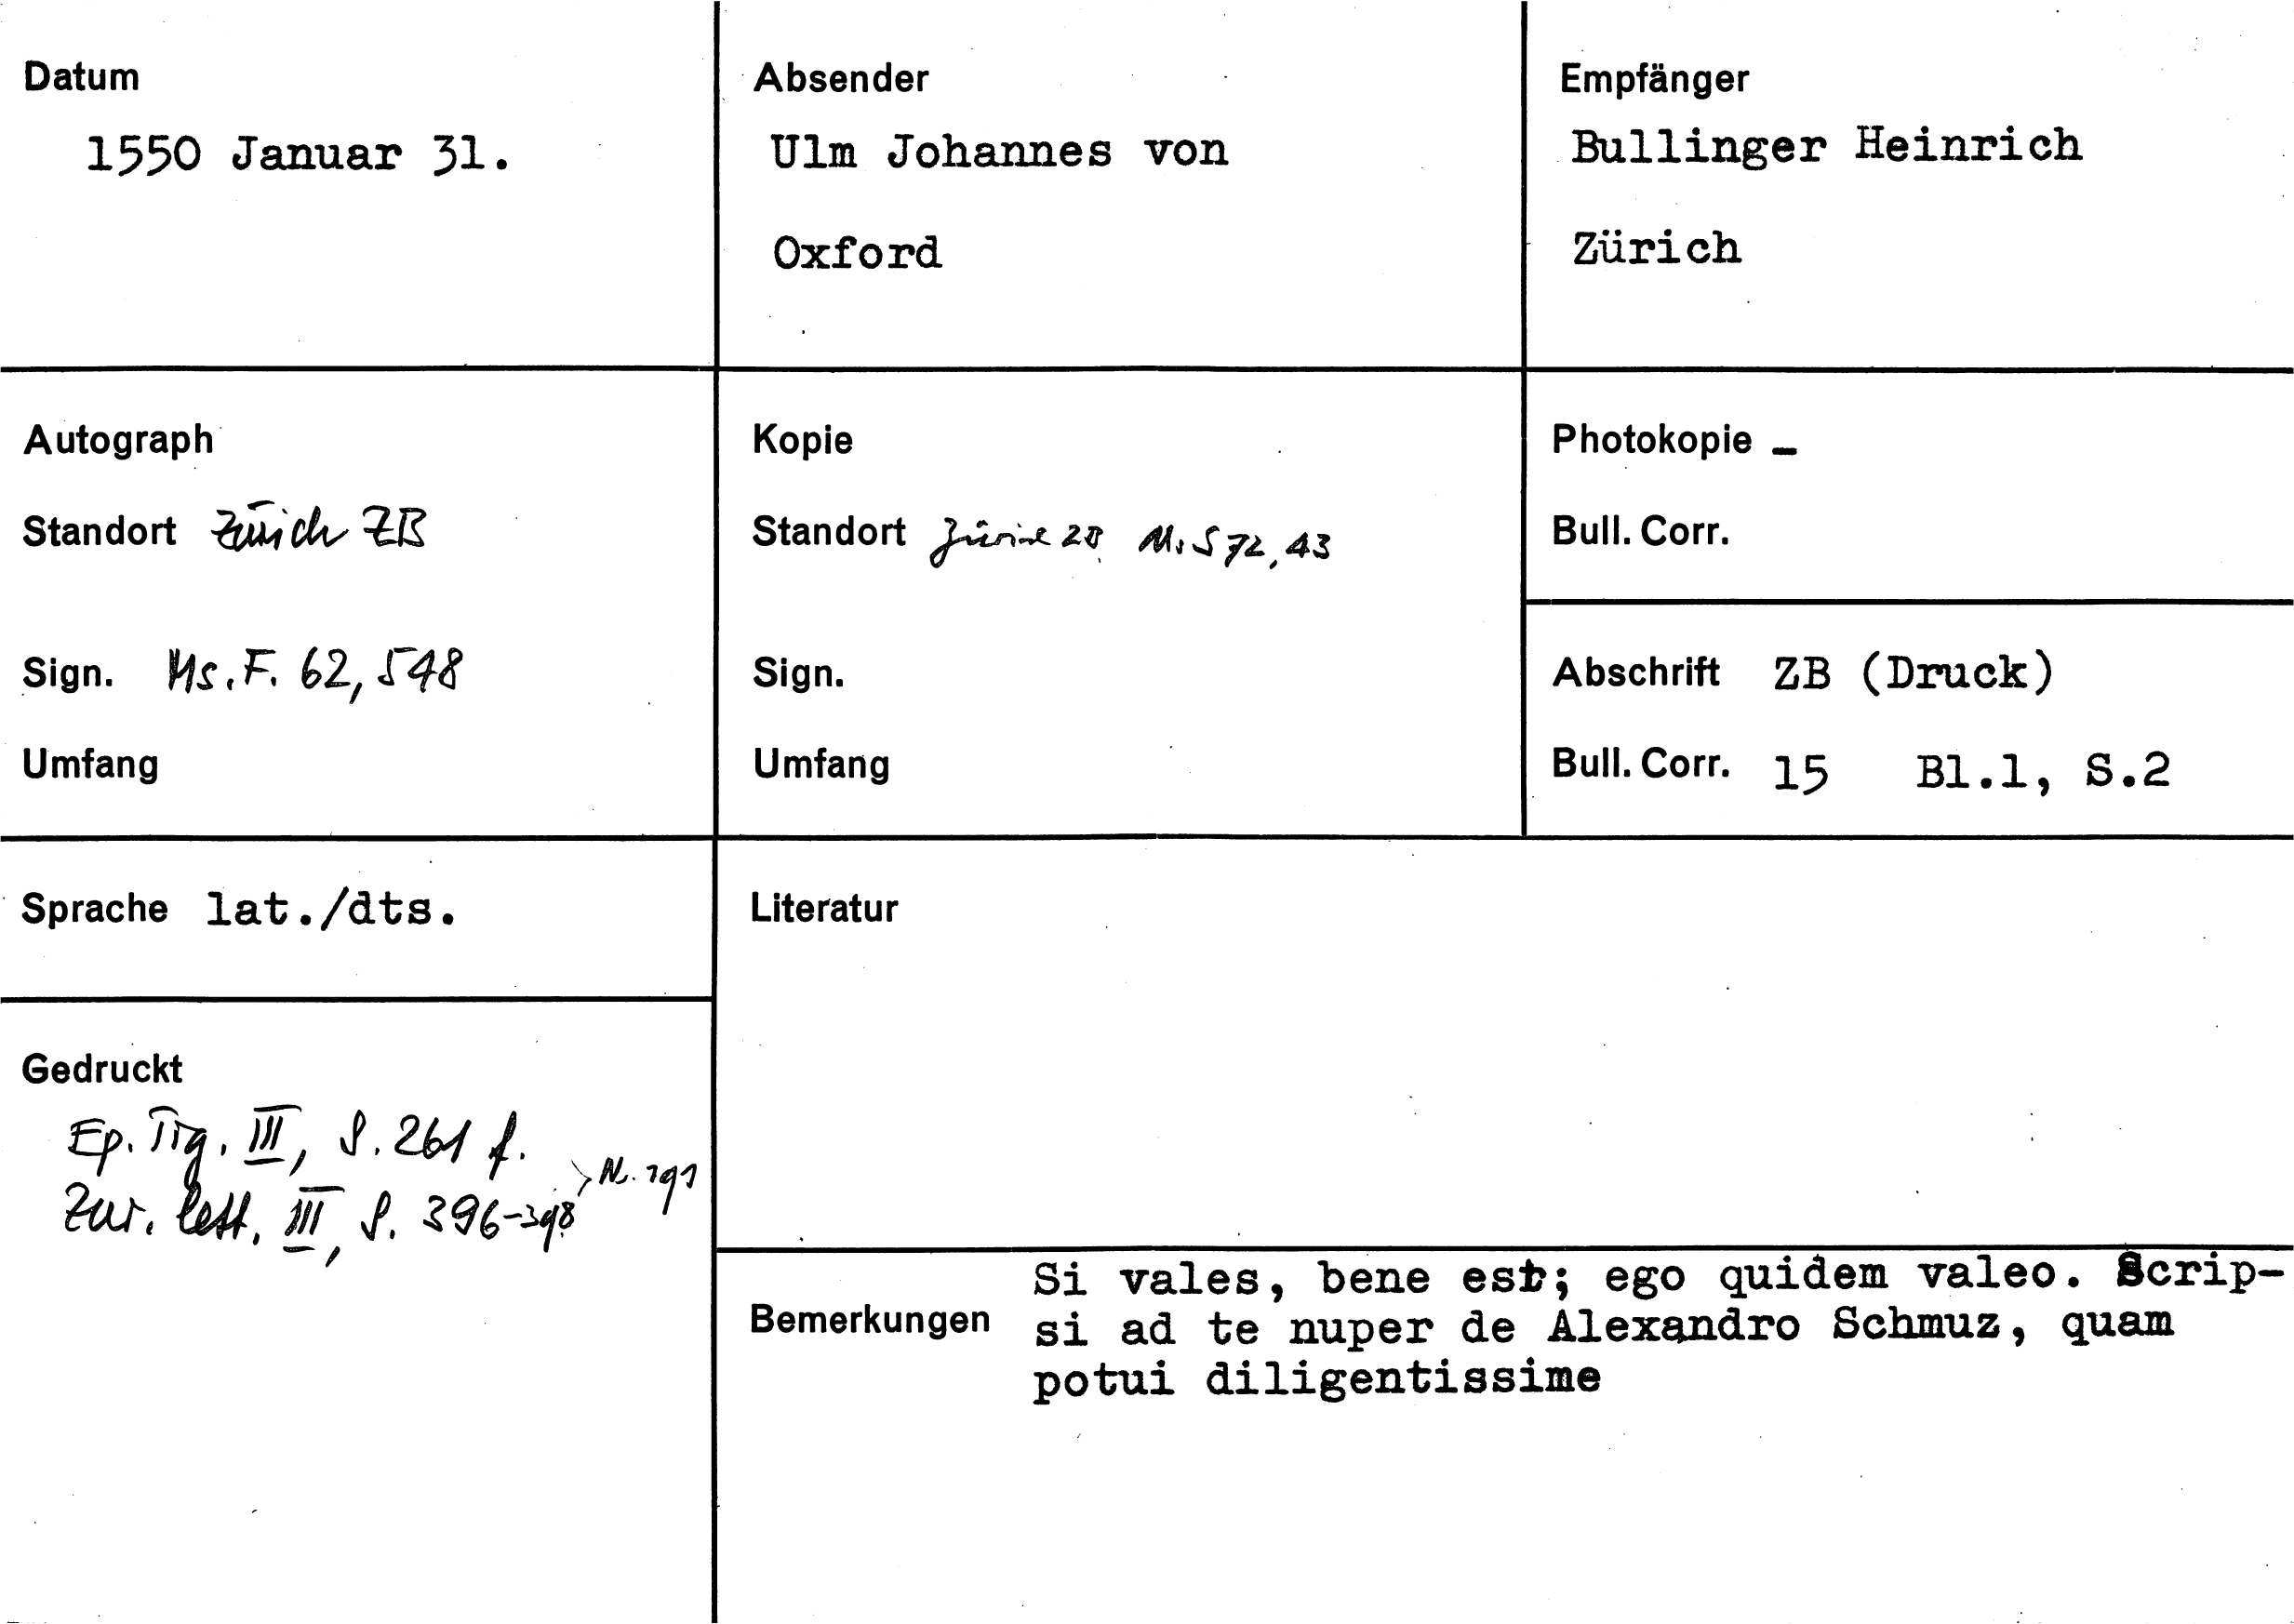 Datum
1550 Januar 31.
Absender
Ulm Johannes von
Oxford
Empfänger
Bullinger Heinrich
Zürich
Autograph
Standort Zürich ZB
Sign. Ms. F. 62, 548
Umfang
Kopie
Standort Zürich ZB Ms S 72, 43
Sign.
Umfang
Photokopie –
Bull. Corr.
Abschrift ZB (Druck)
Bull. Corr. 15 Bl.1, S.2
Sprache lat./dts.
Literatur
Gedruckt
Ep. Tig. III, S. 261 f.
Zur. lett. III, S. 396-398
> Nr. 191
Bemerkungen
Si vales, bene est; ego quidem valeo. Scrip-
si ad te nuper de Alexandro Schmuz, quam
potui diligentissime